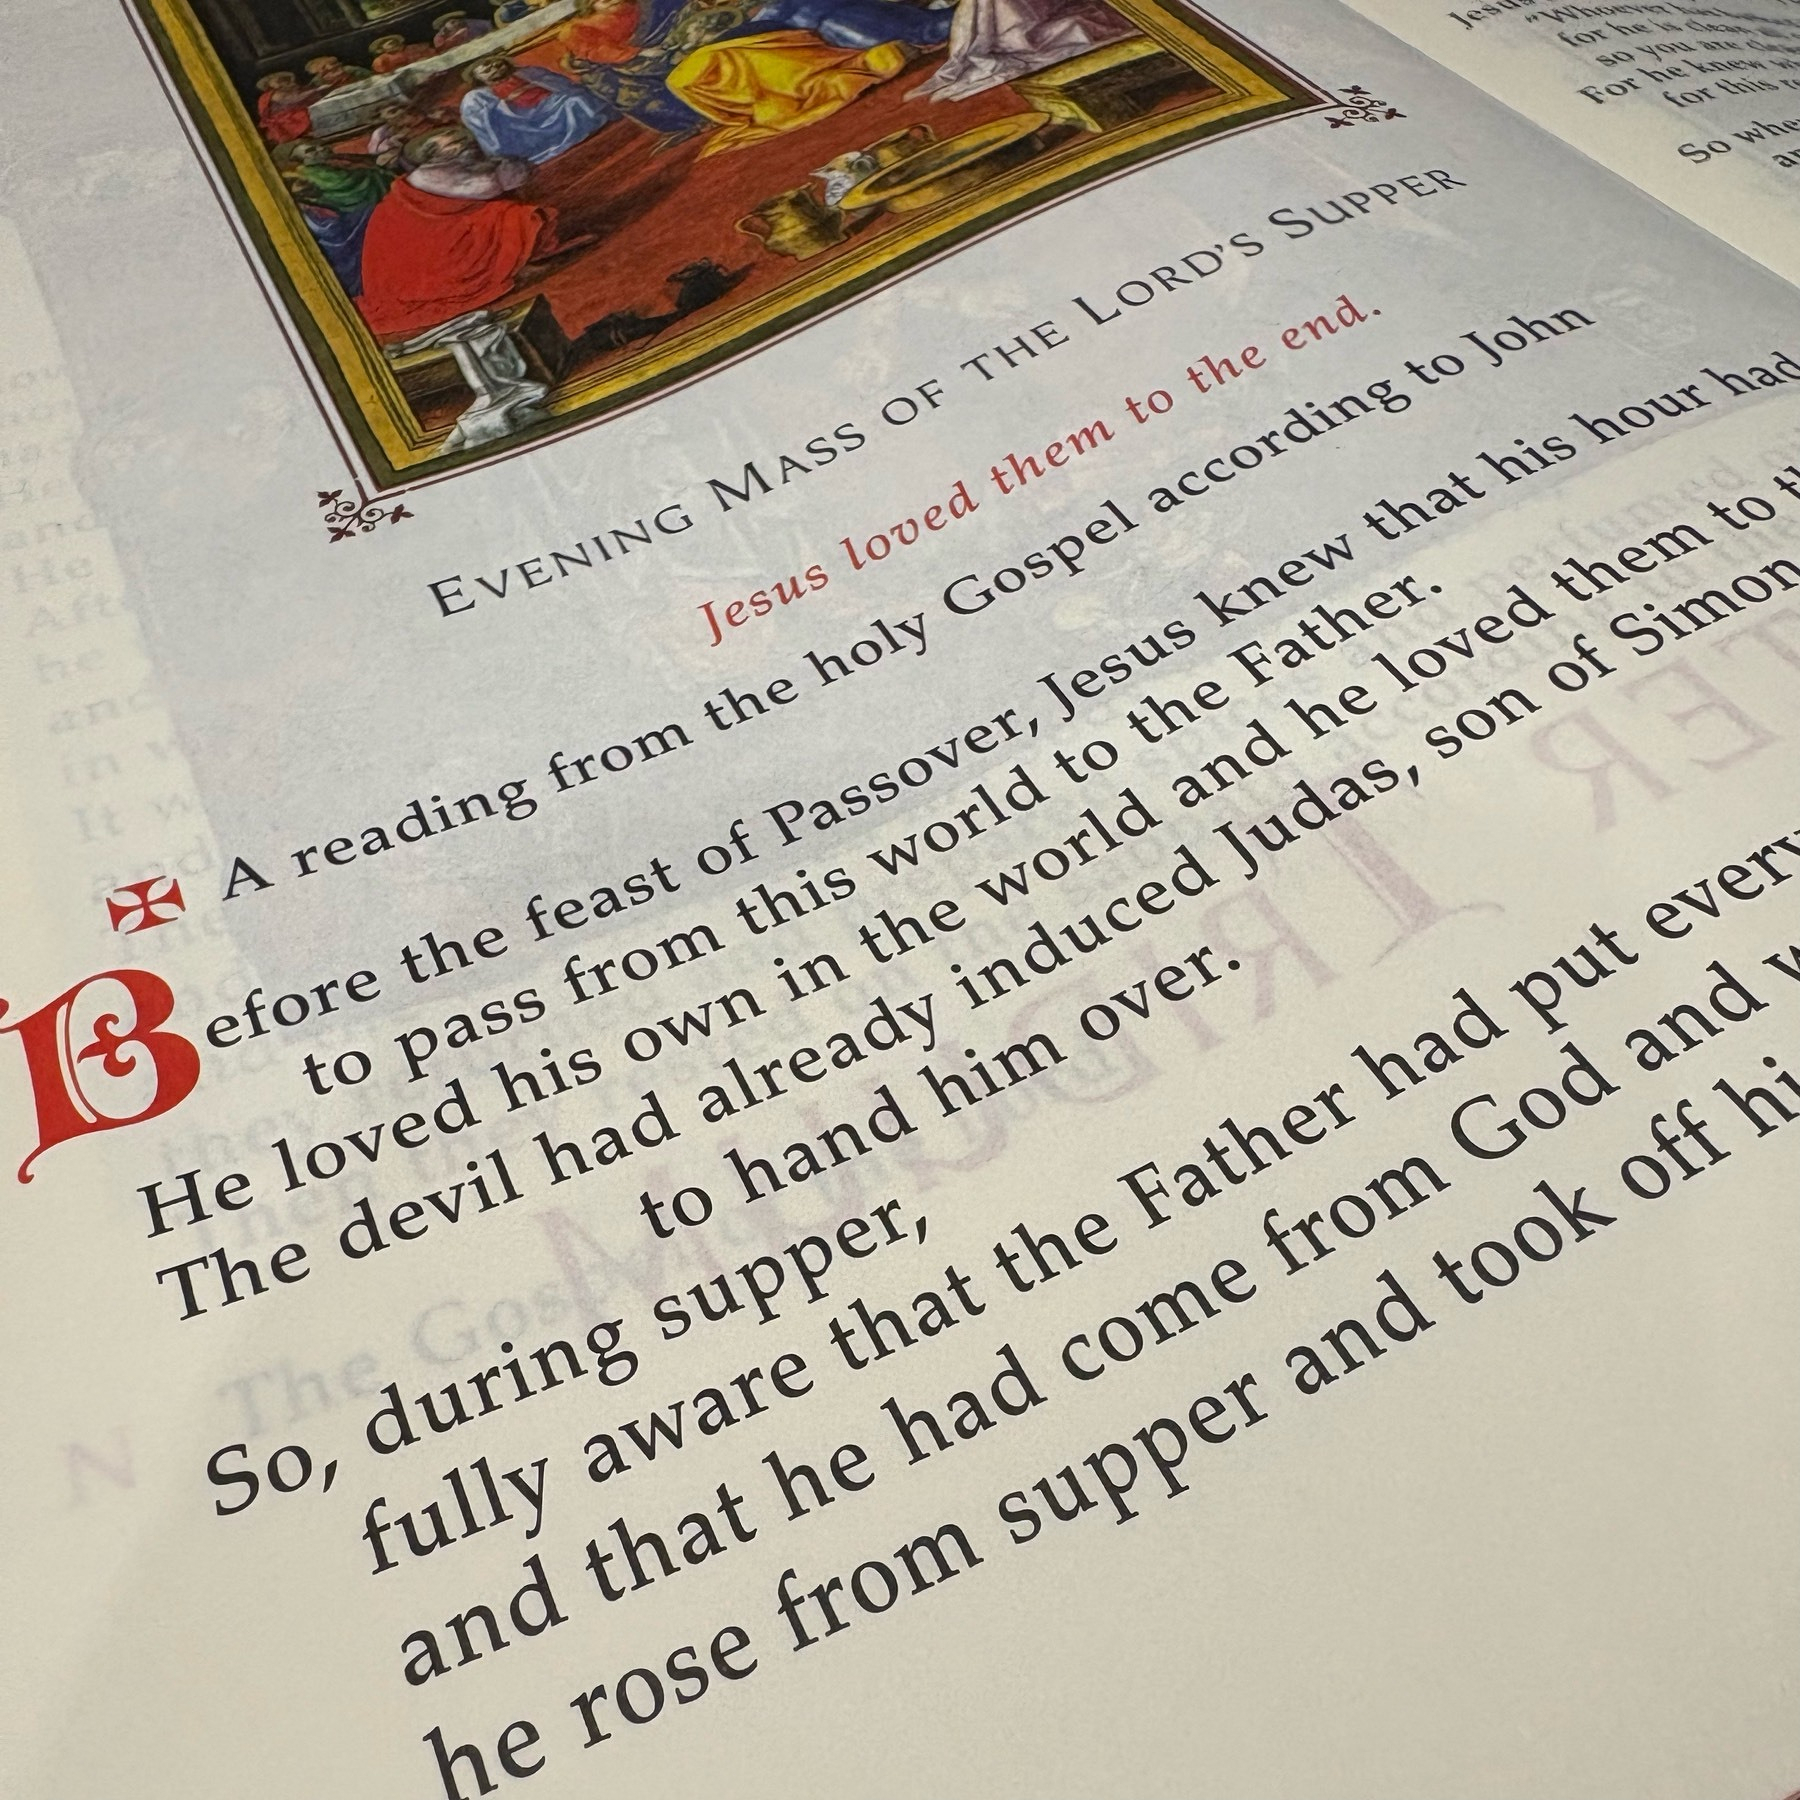 EVENING MASS OF THE LORD'S SUPPER
Jesus loved them to the end.
✠ A reading from the holy Gospel according to John
Before the feast of Passover, Jesus knew that his hour had
to pass from this world to the Father.
He loved his own in the world and he loved them to
The devil had already induced Judas, son of Simon
to hand him over.
So, during supper,
fully aware that the Father had put every
and that he had come from God and
he rose from supper and took off
Jesus
"Whoever
for he is clean
so you are clean
For he knew
for this
So when